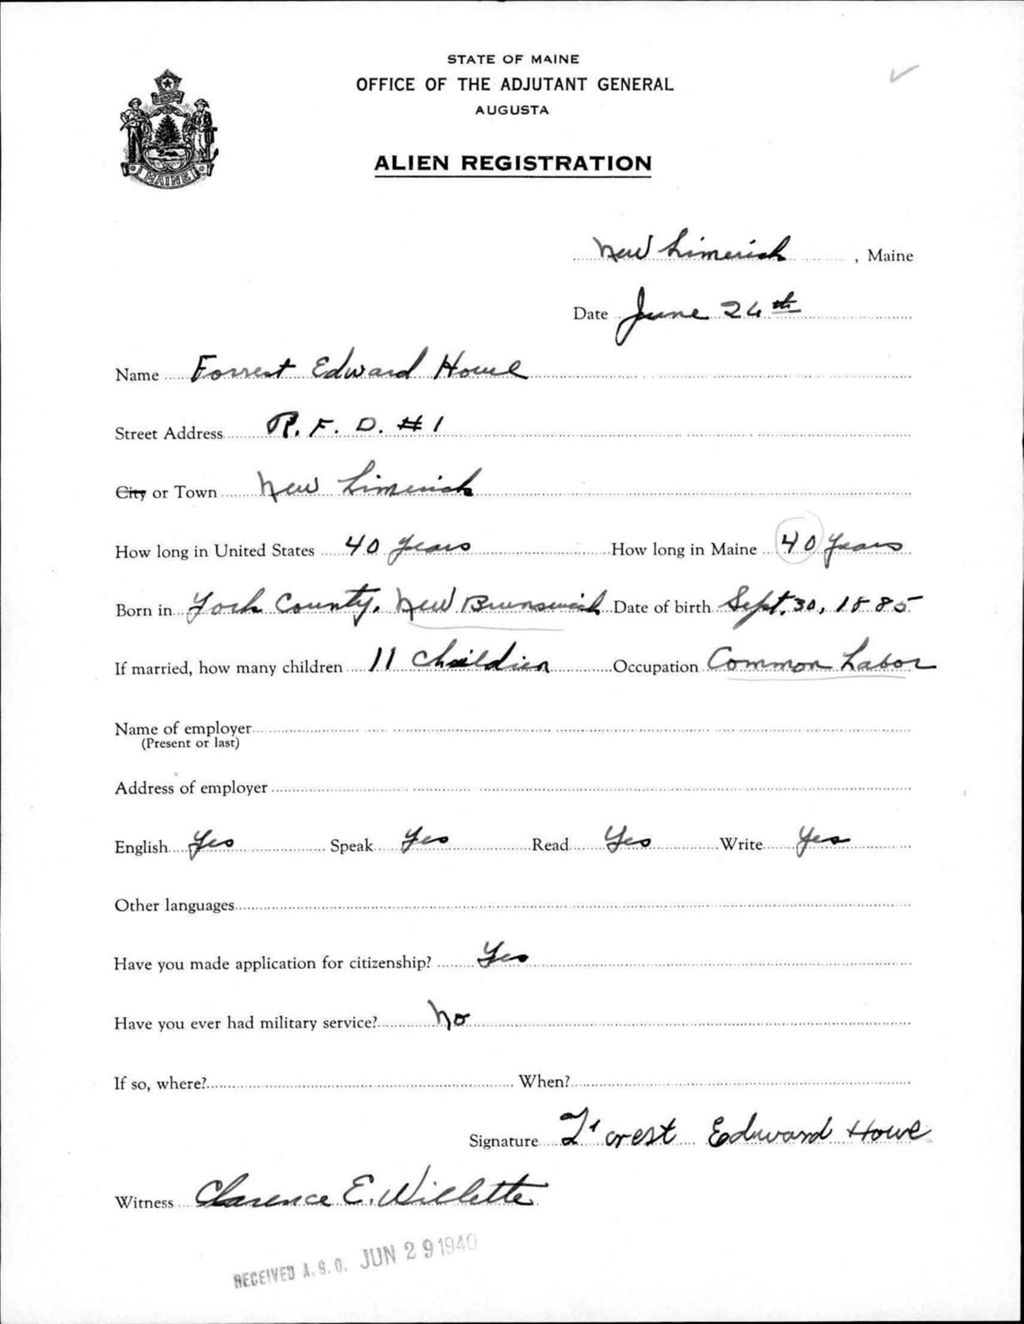 STATE OF MAINE
OFFICE OF THE ADJUTANT GENERAL
AUGUSTA
ALIEN REGISTRATION
MAINE
New Limerick, Maine
Date June 24th
Name Forrest Edward Howe
Street Address R. F. D. #1
City or Town New Limerick
How long in United States 40 years How long in Maine 40 years
Born in York County, New Brunswick Date of birth Sept. 30, 1885
If married, how many children 11 children Occupation Common Labor
Name of employer
(Present or last)
Address of employer
English Yes Speak Yes Read Yes Write Yes
Other languages
Have you made application for citizenship? Yes
Have you ever had military service? No
If so, where? When?
Signature Edward Howe
Witness Clarence E. Willette
RECEIVED A.G.O. JUN 29 1940